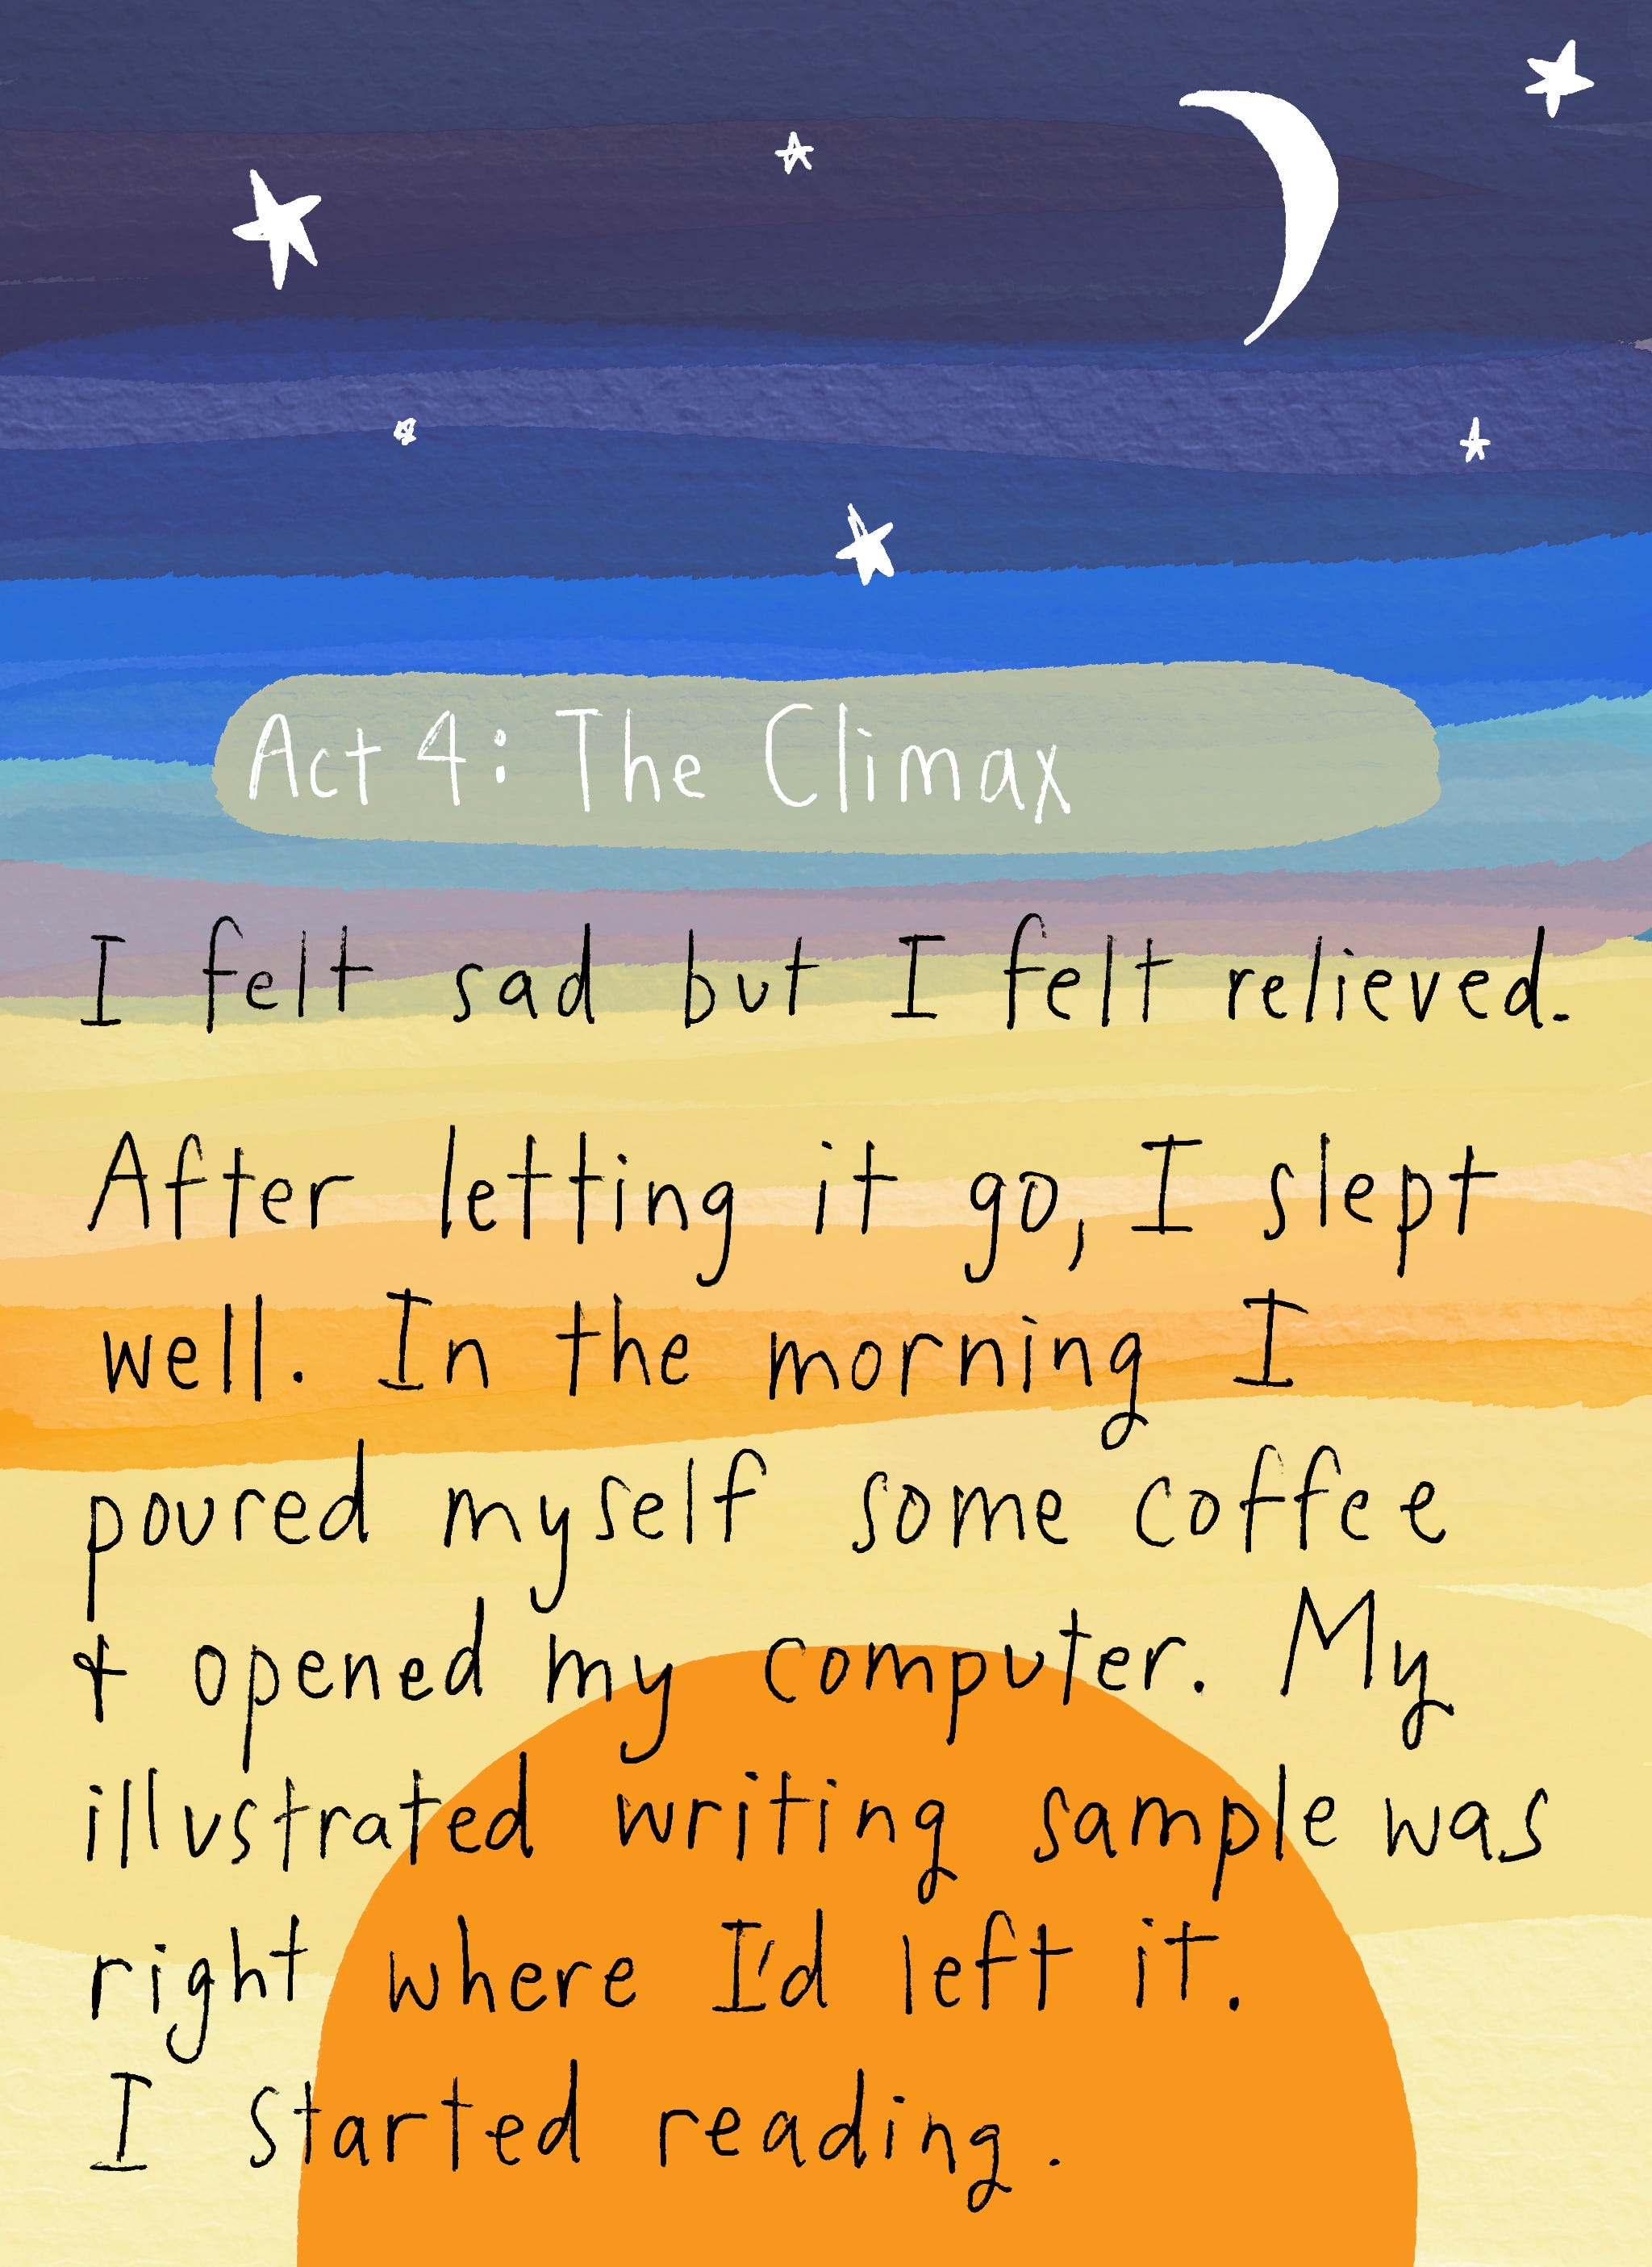 Act 4: The Climax
I felt sad but I felt relieved.
After letting it go, I slept
well. In the morning I
poured myself some coffee
& opened my computer. My
illustrated writing sample was
right where I'd left it.
I started reading.